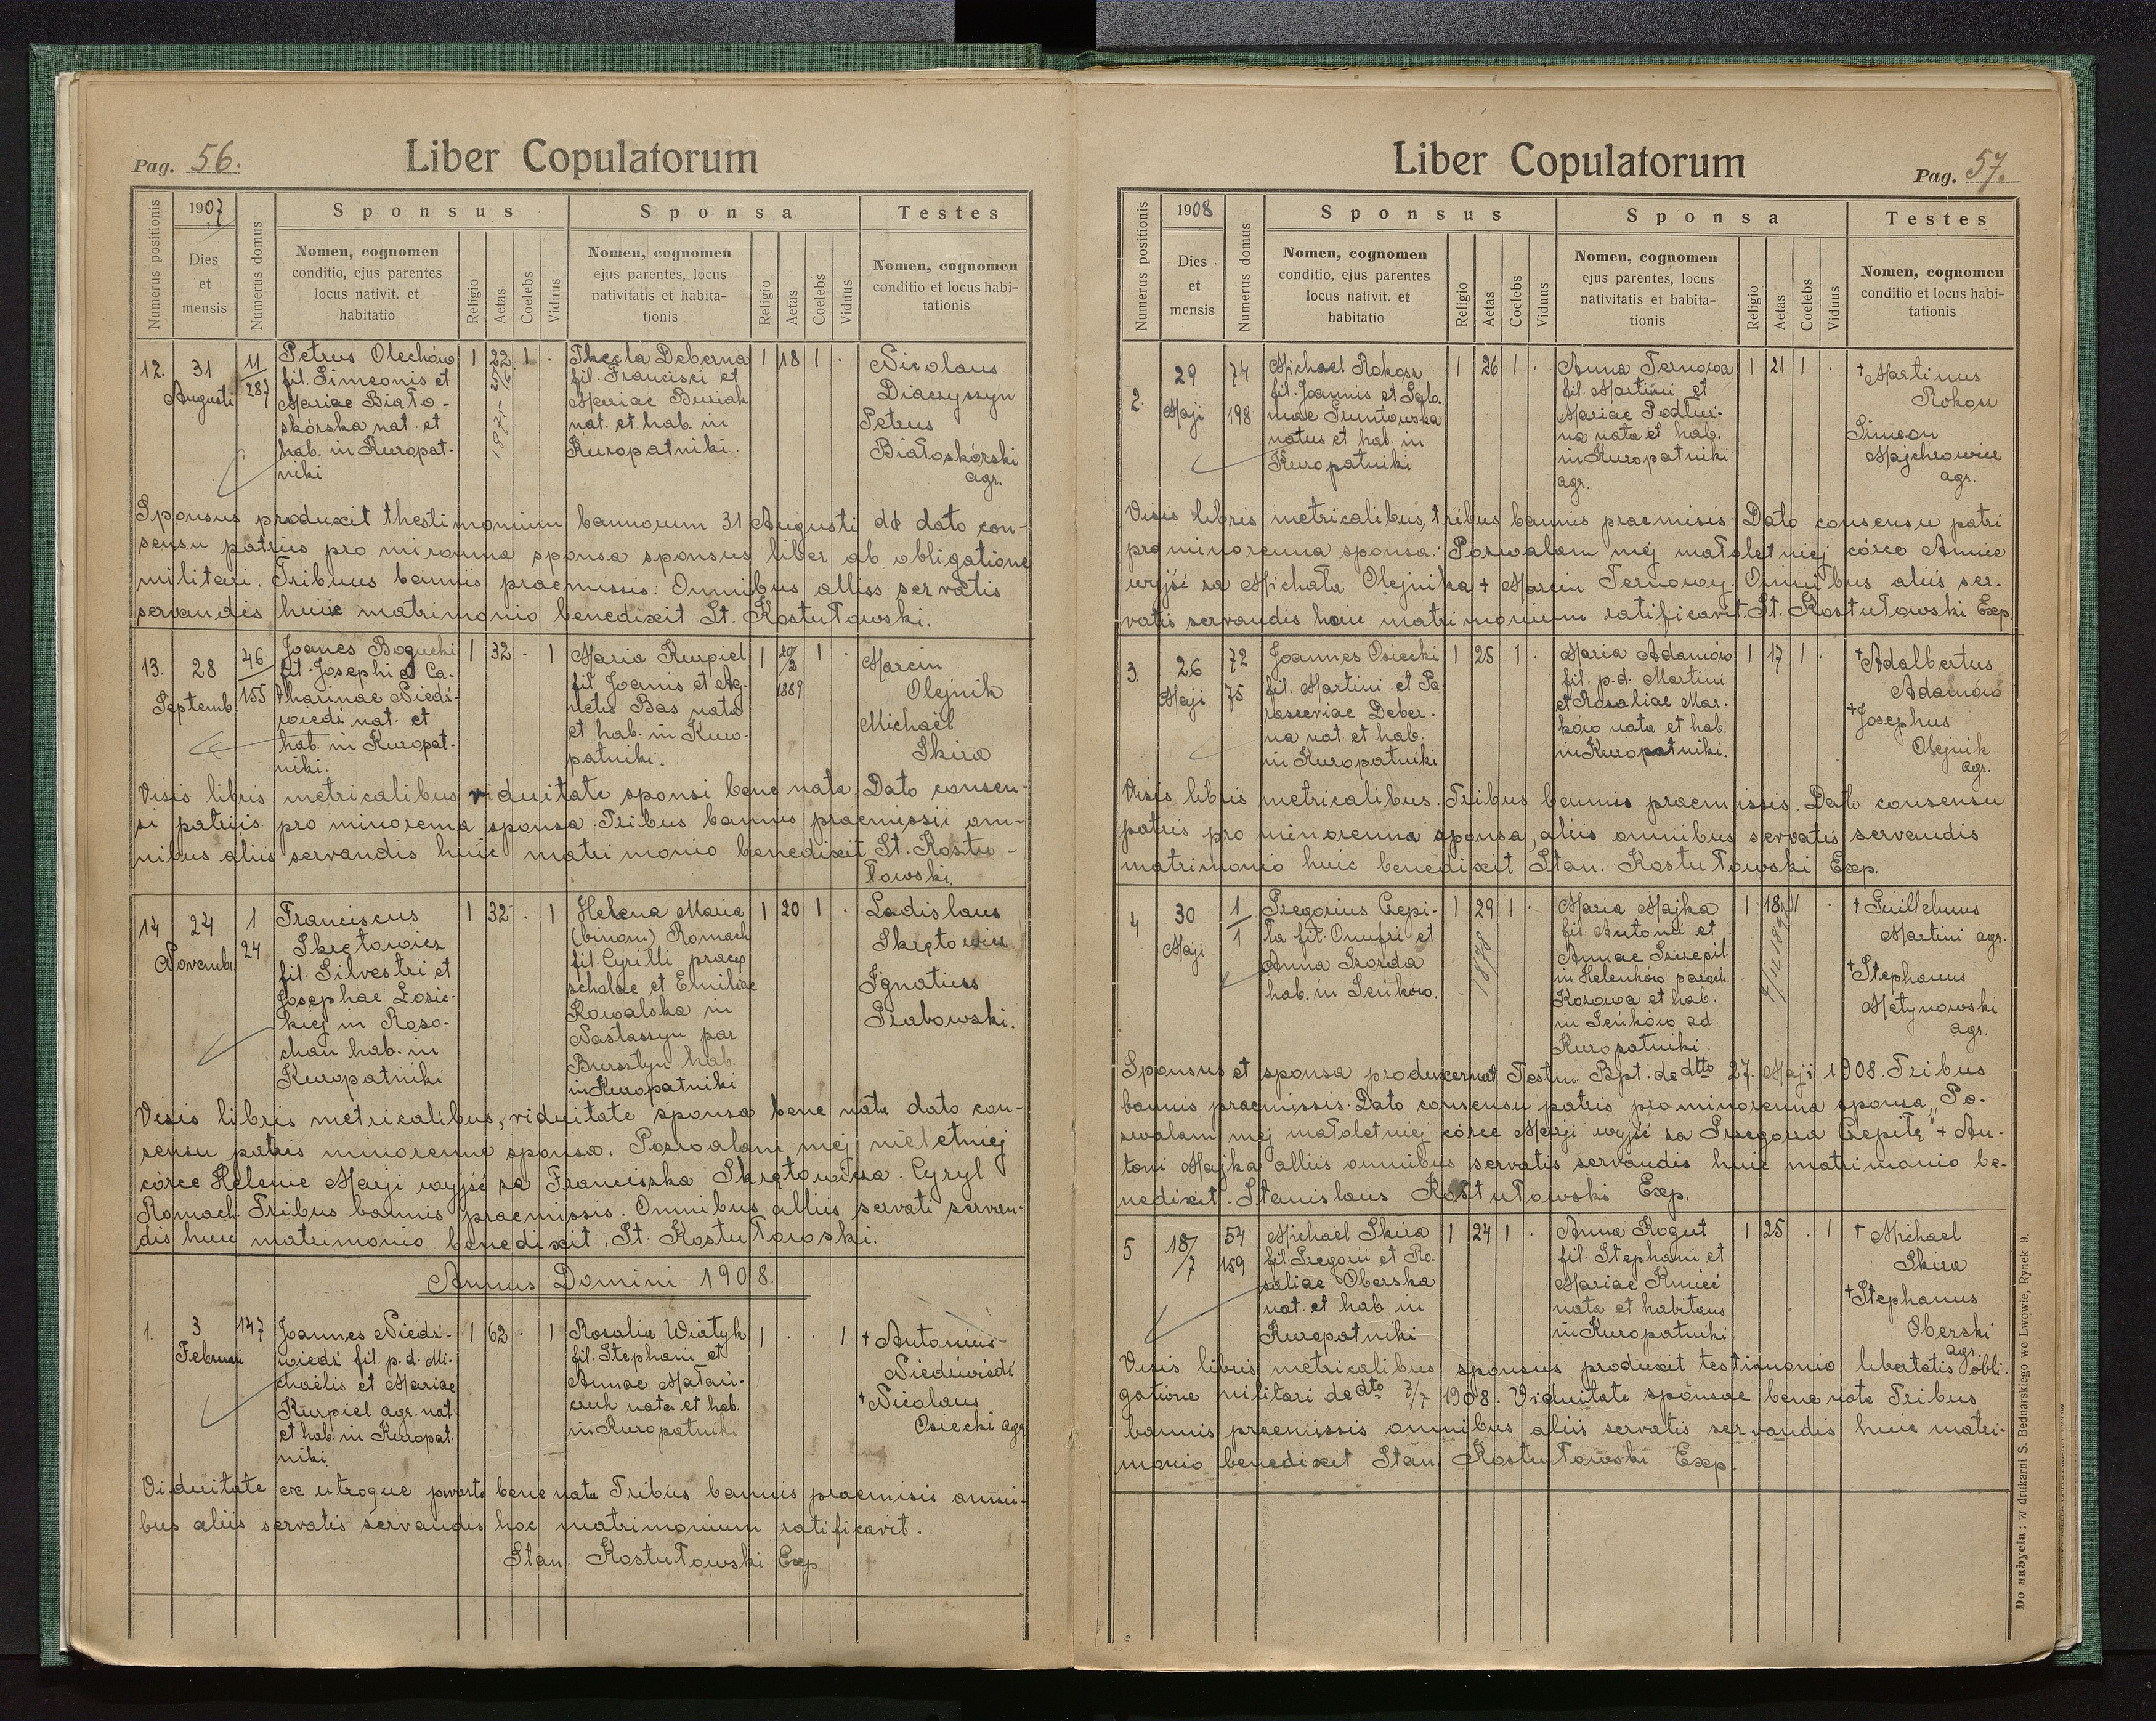 Pag. 56.
Liber Copulatorum
Numerus positionis
1907
Dies
et
mensis
Numerus domus
Sponsus
Nomen, cognomen
conditio, ejus parentes
locus nativit. et
habitatio
Religio
Aetas
Coelebs
Viduus
Sponsa
Nomen, cognomen
ejus parentes, locus
nativitatis et habita-
tionis
Religio
Aetas
Coelebs
Viduus
Testes
Nomen, cognomen
conditio et locus habi-
tationis
12.
31
Augusti
11
287
Petrus Olechów
fil. Simeonis et
Mariae Biało-
skórska nat. et
hab. in Kuropat-
niki
1
22
1
.
Thecla Deberna
fil. Francisci et
Mariae Buriak
nat. et hab. in
Kuropatniki.
1
18
1
.
Nicolaus
Diaczyszyn
Petrus
Białoskórski
agr.
Sponsus produxit thestimonium bannorum 31 Augusti dd dato con-
sensu patries pro minorenna sponsa sponsus liber ab obligatione
militari. Tribuus bannis praemissis: Omnibus alliss servatis
servandis huic matrimonio benedixit St. Kostułowski.
13.
28
Septemb.
46
155
Joanes Bogucki
fil. Josephi et Ca-
tharinae Niedź-
wiedź nat. et
hab. in Kuropat-
niki.
1
32
.
1
Maria Kurpiel
fil. Joanis et Ag-
netis Bas nata
et hab. in Kuro-
patniki.
1
20/2
1889
1
.
Marcin
Olejnik
Michael
Skira
Visis libris metricalibus viduitate sponsi bene nata. Dato consen-
su patriis pro minorema sponsa. Tribus bannis praemissii om-
nibus aliis servandis huic matrimonio benedixit St. Kostu-
łowski.
14
24
Novembr.
1
24
Franciscus
Skrętowicz
fil. Silvestri et
Josephae Łozic-
kiej in Roso-
chan hab. in
Kuropatniki
1
32
.
1
Helena Maria
(binom) Romach
fil. Cyrilli praec
scholae et Emiliae
Kowalska in
Nastaszyn par
Bursztyn hab.
in Kuropatniki
1
20
1
.
Ladislaus
Skrętowicz
Ignatius
Grabowski.
Visis libris metricalibus, viduitate sponsa bene nata dato con-
sensu patris minorenne sponsa. Pozwalam mej nieletniej
córce Helenie Marji wyjść za Franciszka Skrętowicza. Cyryl
Romach. Tribus bannis praemissis. Omnibus alliis servati serven-
dis huic matrimonio benedixit. St. Kostułowski.
Annus Domini 1908.
1.
3
Februari
147
Joannes Niedź-
wiedź fil. p. d. Mi-
chaëlis et Mariae
Kurpiel agr. nat.
et hab. in Kuropat.
niki.
1
62
.
1
Rosalia Wiatyk
fil. Stephani et
Annae Matań-
czuk nata et hab.
in Kuropatniki
1
.
.
1
+ Antonius
Niedźwiedź
+ Nicolaus
Osiecki agr
Viduitate ex utroque parte bene nata Tribus bannis praemisis omni-
bus aliis servatis servandis hoc matrimonium ratificavit.
Stan. Kostułowski Exp.
Liber Copulatorum
Pag. 57.
Numerus positionis
1908
Dies
et
mensis
Numerus domus
Sponsus
Nomen, cognomen
conditio, ejus parentes
locus nativit. et
habitatio
Religio
Aetas
Coelebs
Viduus
Sponsa
Nomen, cognomen
ejus parentes, locus
nativitatis et habita-
tionis
Religio
Aetas
Coelebs
Viduus
Testes
Nomen, cognomen
conditio et locus habi-
tationis
2.
29
Maji
74
198
Michael Rokosz
fil. Joannis et
natus et hab. in
Kuropatniki
1
26
1
.
Anna Ternowa
fil. Martini et
Mariae Podluź-
na nata et hab.
in Kuropatniki
agr.
1
21
1
.
+ Martinus
Rokosz
Simeon
Majchrowicz
agr.
Visis libris metricalibus, tribus bannis praemisis. Dato consensu patri
pro minorenna sponsa: Pozwalam mej małoletniej córce Annie
wyjść za Michała Olejnika + Marcin Ternowy. Omnibus aliis ser-
vatis servandis huic matrimonium ratificavit. St. Kostułowski Exp.
3.
26
Maji
72
75
Joannes Osiecki
fil. Martini et Pa-
rasceviae Deber-
na nat. et hab.
in Kuropatniki
1
25
1
.
Maria Adamów
fil. p. d. Martini
et Rosaliae Mar-
ków nata et hab.
in Kuropatniki.
1
17
1
.
+ Adalbertus
Adamów
+ Josephus
Olejnik
agr.
Visis libris metricalibus. Tribus bannis praemissis. Dato consensu
patris pro minorenna sponsa, aliis omnibus servatis servandis
matrimonio huic benedixit Stan. Kostułowski Exp.
4
30
Maji
1
1
Gregorius Czepi-
ła fil. Onufri et
Anna Szorda
hab. in Seńków.
1
29
1878
1
.
Maria Majka
fil. Antoni et
Annae Szczepil
in Helenków paroch.
Kozowa et hab.
in Seńków ad
Kuropatniki.
1
18
1
.
+ Guillelmus
Martini agr.
+ Stephanus
Matynowski
agr.
Sponsus et sponsa produxerunt Testm. Bpt. de dtto 27. Maji 1908. Tribus
bannis praemissis. Dato consensu patris pro minorenna sponsa „Po-
zwalam mej małoletniej córce Marji wyjść za Grzegorza Czepiłę" + An-
toni Majka alliis omnibus servatis servandis huic matrimonio be-
nedixit. Stanislaus Kostułowski Exp.
5
18/7
54
159
Michael Skira
fil. Gregorii et Ro-
saliae Oberska
nat. et hab. in
Kuropatniki
1
24
1
.
Anna Rogut
fil. Stephani et
Mariae Kmieć
nata et habitans
in Kuropatniki
1
25
.
1
+ Michael
Skira
+ Stephanus
Oberski
agr.
Visis libris metricalibus sponsus produxit testimonio libertatis obli-
gatione militari de dto 7/7 1908. Viduitate sponsae bene nota Tribus
bannis praemisssis omnibus aliis servatis servandis huic matri-
monio benedixit Stan. Kostułowski Exp.
Do nabycia: w drukarni S. Bednarskiego we Lwowie, Rynek 9.